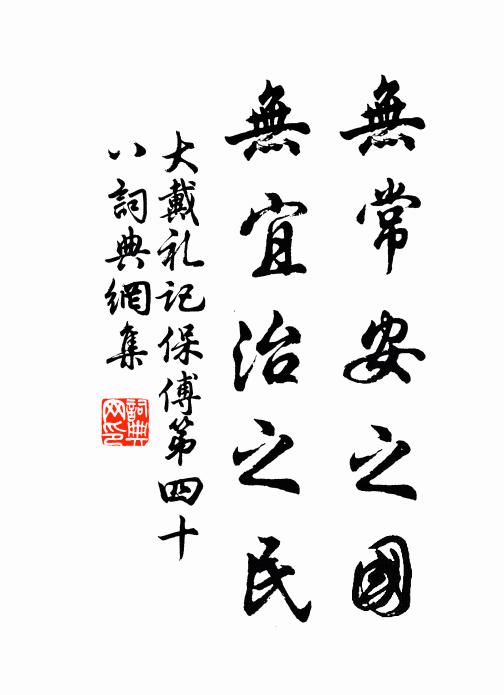 無常安之國
無宜治之民
大戴礼记保傅第四十
八詞典網集
詞典
网印